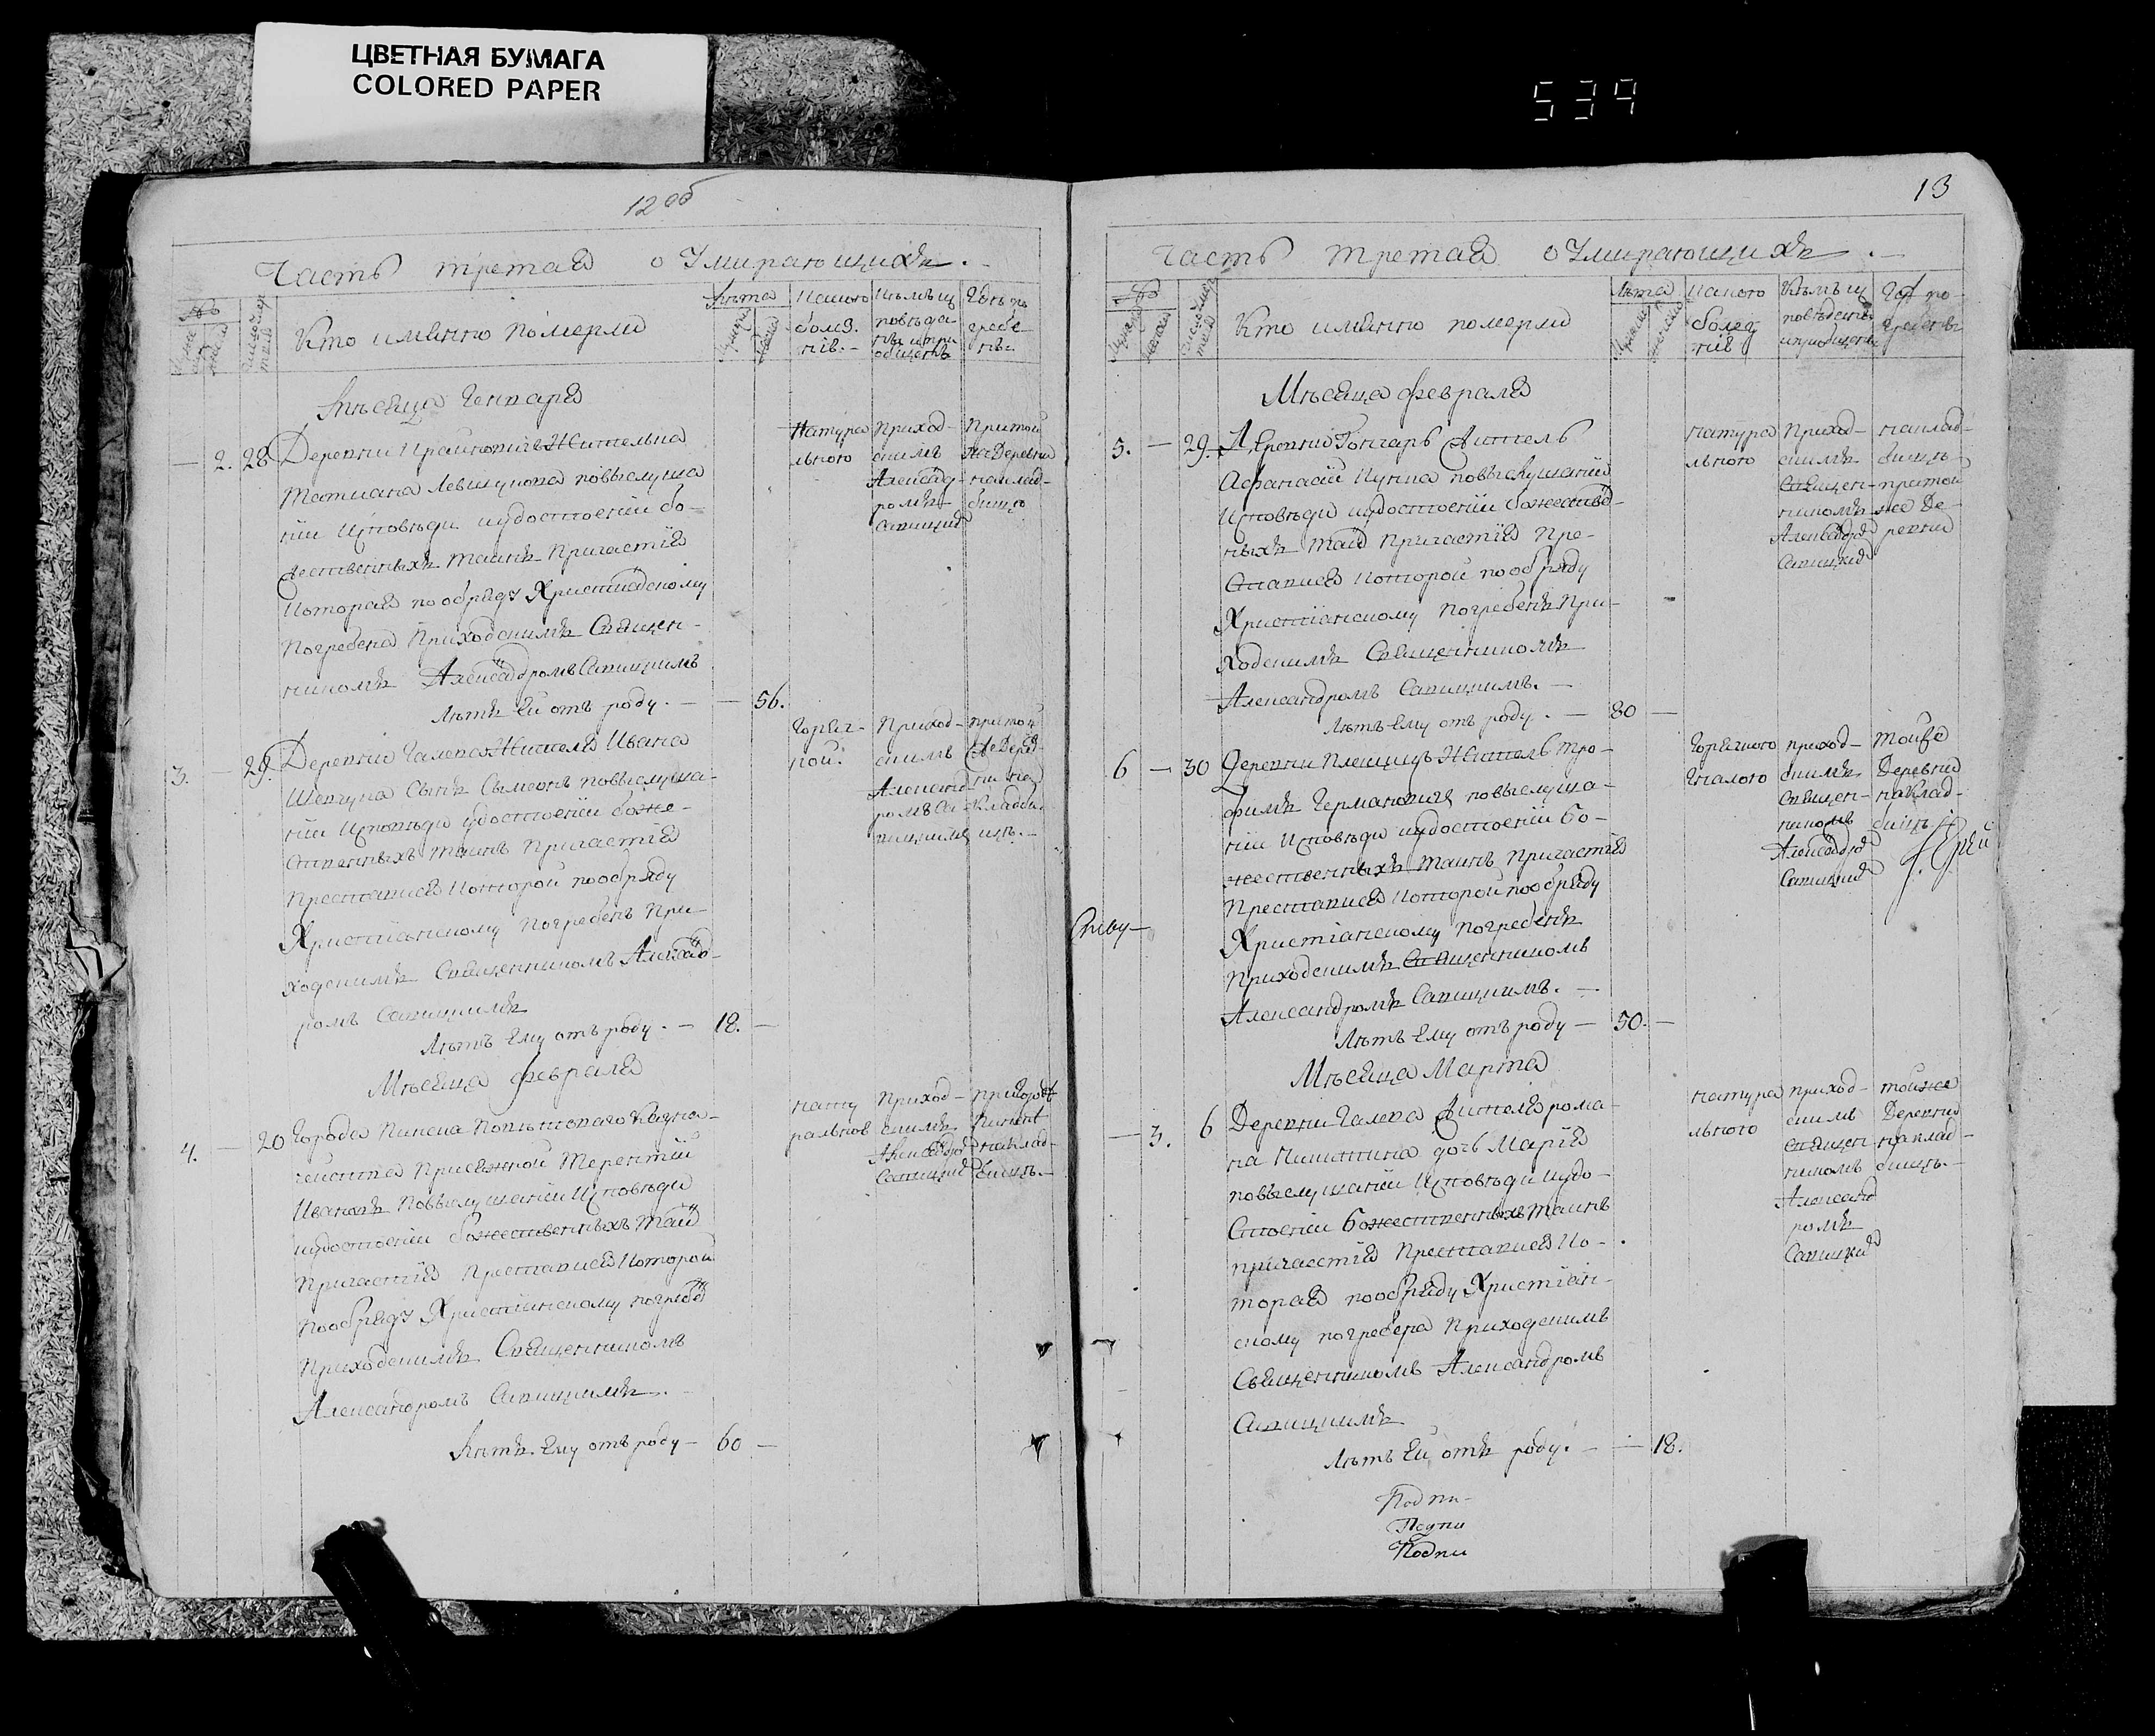 ЦВЕТНАЯ БУМАГА
COLORED PAPER
539
12 об
Часть третая о Умирающихъ.
№
Лѣта
Какою
болѣз.
нію.
Кѣмъ ис
повѣда
ны и при
общены
Гдѣ по
гребе
ны
Кто имянно померли
Мѣсяца Генваря
2. 28
Деревни Жителка
Татиана Левщукова повыслуша
нiи Исповѣди иудостоенiи бо-
жественныхъ таинъ Причастiя
Которая по обряду Христiанскому
Погребена Приходскимъ Священ-
никомъ Александромъ Савицкимъ
Лѣтъ Ей отъ роду. — — 56.
Натура
льною
Приход-
скимъ
Александ-
ромъ
Савицкимъ
При той
же Деревни
на клад-
бищѣ
3. — 29.
Деревни Галева Жителя Ивана
Шевчука Сынъ Сымеонъ повыслуша-
нiи Исповѣди удостоенiи боже-
ственныхъ таинъ Причастiя
Преставися Которой по обряду
Христiанскому Погребенъ При-
ходскимъ Священникомъ Александ-
ромъ Савицкимъ
Лѣтъ Ему отъ роду. — 18. —
Горяч-
кой.
Приход-
скимъ
Александ
ромъ Са-
вицкимъ
при той
же Дерев-
ни на
Кладби-
щѣ.
Мѣсяца февраля
4. — 20
Города Пинска Повѣтоваго Казна-
чейства Присяжной Терентiй
Ивановъ Повыслушанiи Исповѣди
иудостоенiи божественныхъ таинъ
Причастiя Преставися Которой
По обряду Христiанскому погребенъ
Приходскимъ Священникомъ
Александромъ Савицкимъ.
Лѣтъ. Ему отъ роду — 60 —
нату
ральною
Приход-
скимъ
Александ
Савицкимъ
при городѣ
Пинскѣ
на клад-
бищѣ.
13
Часть третая о Умирающихъ.
№
Лѣта
Какою
болез
нiю
Кѣмъ ис
повѣданы
и приобщены
Гдѣ по-
гребены
Кто имянно померли
Мѣсяца февраля
5. — 29.
Деревни Гончаръ Житель
Афанасiй Кукла повыслушанiи
Исповѣди иудостоенiи божестве-
ныхъ таинъ Причастiя Пре-
ставися Которой по обряду
Христiанскому Погребенъ При-
ходскимъ Священникомъ
Александромъ Савицкимъ. —
Лѣтъ Ему отъ роду. — 80 —
натура
льною
Приход-
скимъ
Священ-
никомъ
Александро
Савицким
на клад-
бищѣ
при той
же Де-
ревни
6 — 30
Деревни Плещицъ Житель Тро-
фимъ Германовичъ повыслуша-
нiи Исповѣди иудостоенiи Бо-
жественныхъ таинъ Причастiя
Преставися Которой по обряду
Христiанскому погребенъ
Приходскимъ Священникомъ
Александромъ Савицкимъ. —
Лѣтъ Ему отъ роду — 50. —
Горячкою
приход-
скимъ
священ-
никомъ
Александро
Савицким
той же
Деревни
на Клад-
бищѣ
Iерей
Мѣсяца Марта
— 3. 6
Деревни Галева Жителя Рома-
на Никитина дочь Марiя
повыслушанiи Исповѣди иудо-
стоенiи божественныхъ таинъ
причастiя Преставися Ко-
торая по обряду Христiан-
скому погребена Приходскимъ
Священникомъ Александромъ
Савицкимъ
Лѣтъ Ей отъ роду. — — 18.
натура
льною
приход-
скимъ
священ-
никомъ
Александ
ромъ
Савицким
той же
Деревни
на клад-
бищѣ. —
Подпи-
Подпи
Подпи